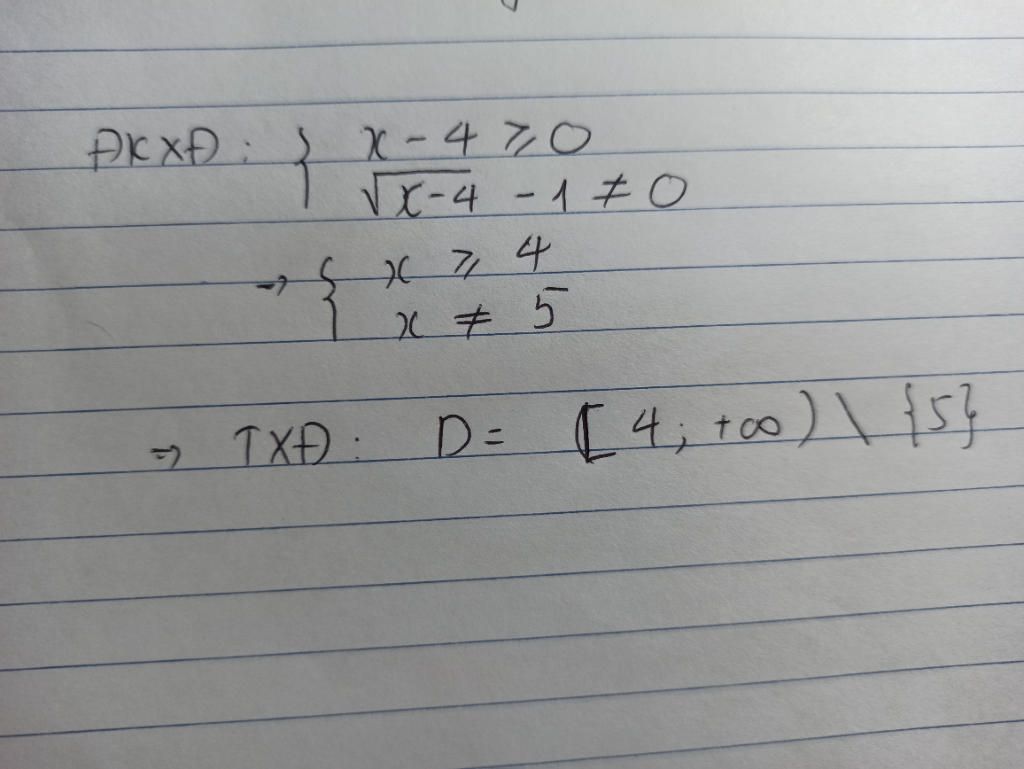 ĐKXĐ: { x - 4 ⩾ 0
√(x-4) - 1 ≠ 0
→ { x ⩾ 4
x ≠ 5
⇒ TXĐ: D = [4; +∞) \ {5}